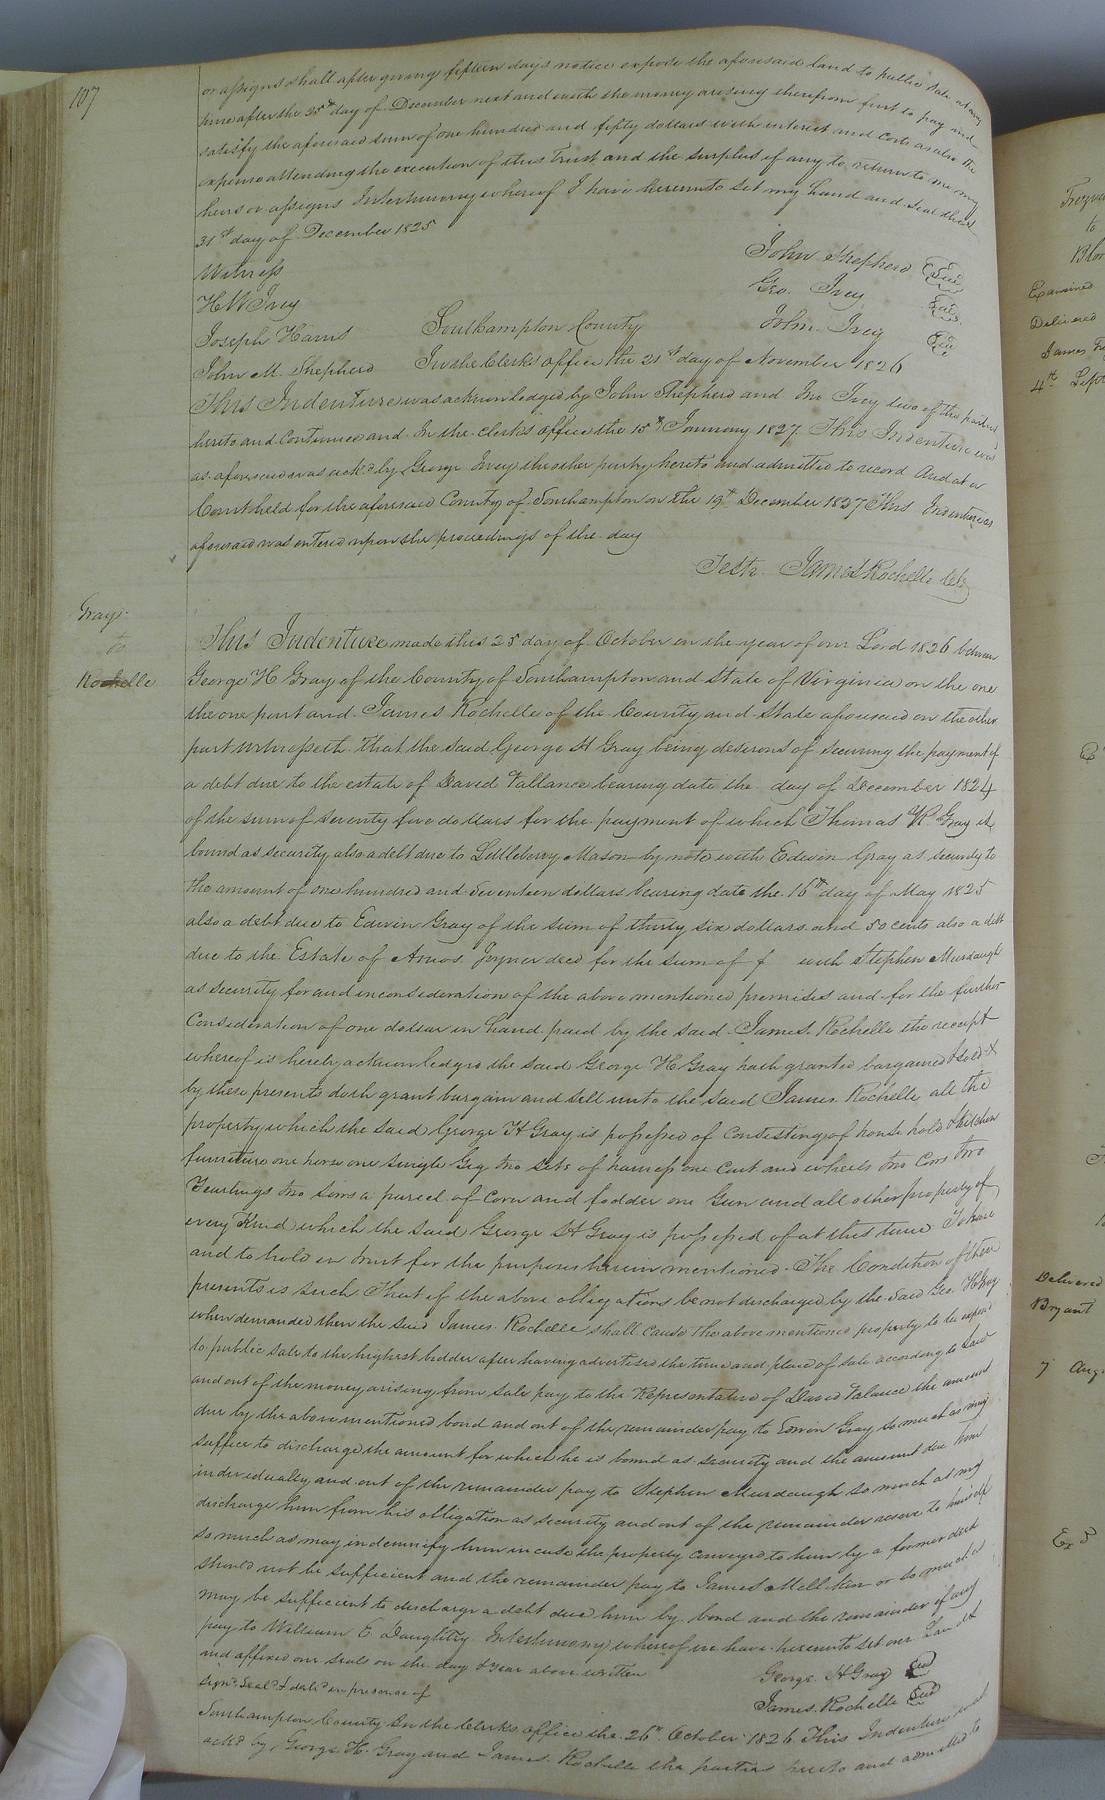 107
or assigns shall after giving fifteen days notice expose the aforesaid land to public sale at any
time after the 25th day of December next and with the money arising therefrom first to pay and
satisfy the aforesaid sum of one hundred and fifty dollars with interest and costs as also the
expense attending the execution of this Trust and the surplus if any to return to me my
heirs or assigns In testimony whereof I have hereunto set my hand and seal this
31st day of December 1825
Witness
John Shepherd Seal
H W Ivey
Geo. Ivey Seal
Joseph Harris
Southampton County
John Ivey Seal
John M. Shepherd
In the Clerks office the 21st day of November 1826
This Indenture was acknowledged by John Shepherd and Jno Ivey two of the parties
hereto and Continued and In the clerks office the 15th January 1827 This Indenture was
as aforesaid was ackd by George Ivey the other party hereto and admitted to record And at a
Court held for the aforesaid County of Southampton on the 19th December 1827 This Indenture as
aforesaid was entered upon the proceedings of the day
Teste. James Rochelle Clk
Gray
to
Rochelle
This Indenture made this 25 day of October in the year of our Lord 1826 between
George H Gray of the County of Southampton and State of Virginia on the one
the one part and James Rochelle of the County and State aforesaid on the other
part Witnesseth That the said George H Gray being desirous of securing the payment of
a debt due to the estate of David Vallance bearing date the day of December 1824
of the sum of Seventy five dollars for the payment of which Thomas Gray is
bound as security also a debt due to Littleberry Mason by note with Edwin Gray as security to
the amount of one hundred and Seventeen dollars bearing date the 16th day of May 1825
also a debt due to Edwin Gray of the sum of thirty six dollars and 50 cents also a debt
due to the Estate of Amos Joyner decd for the sum of $ with Stephen Murdaugh
as security for and in consideration of the above mentioned premises and for the further
Consideration of one dollar in hand paid by the said James Rochelle the receipt
whereof is hereby acknowledged the said George H Gray hath granted bargained & sold &
by these presents doth grant bargain and sell unto the said James Rochelle all the
property which the said George H Gray is possessed of Consisting of house hold & kitchen
furniture one horse one single Gig two sets of harness one Cart and wheels two Cows two
Yearlings two sows a parcel of Corn and fodder one Gun and all other property of
every Kind which the said George H Gray is possessed of at this time To have
and to hold in trust for the purposes herein mentioned. The Condition of these
presents is such That if the above obligations be not discharged by the said Geo. H Gray
when demanded then the said James Rochelle shall cause the above mentioned property to be exposed
to public sale to the highest bidder after having advertised the time and place of sale according to Law
and out of the money arising from sale pay to the Representative of David Valance the amount
due by the above mentioned bond and out of the remainder pay to Edwin Gray so much as may
suffice to discharge the amount for which he is bound as security and the amount due him
individually and out of the remainder pay to Stephen Murdaugh so much as may
discharge him from his obligation as security and out of the remainder reserve to himself
so much as may indemnify him in case the property conveyed to him by a former deed
should not be sufficient and the remainder pay to James or so much as
may be sufficient to discharge a debt due him by bond and the remainder if any
pay to William E. Daughtry In testimony whereof we have hereunto set our hands
and affixed our seals on the day & year above written
George H Gray Seal
Signd Seald & deld in presence of
James Rochelle Seal
Southampton County In the Clerks office the 26th October 1826 This Indenture was
ackd by George H. Gray and James Rochelle the parties hereto and admitted to
to
Examined
Delivered
4th Sept
Delivered
Bryant
7 Aug